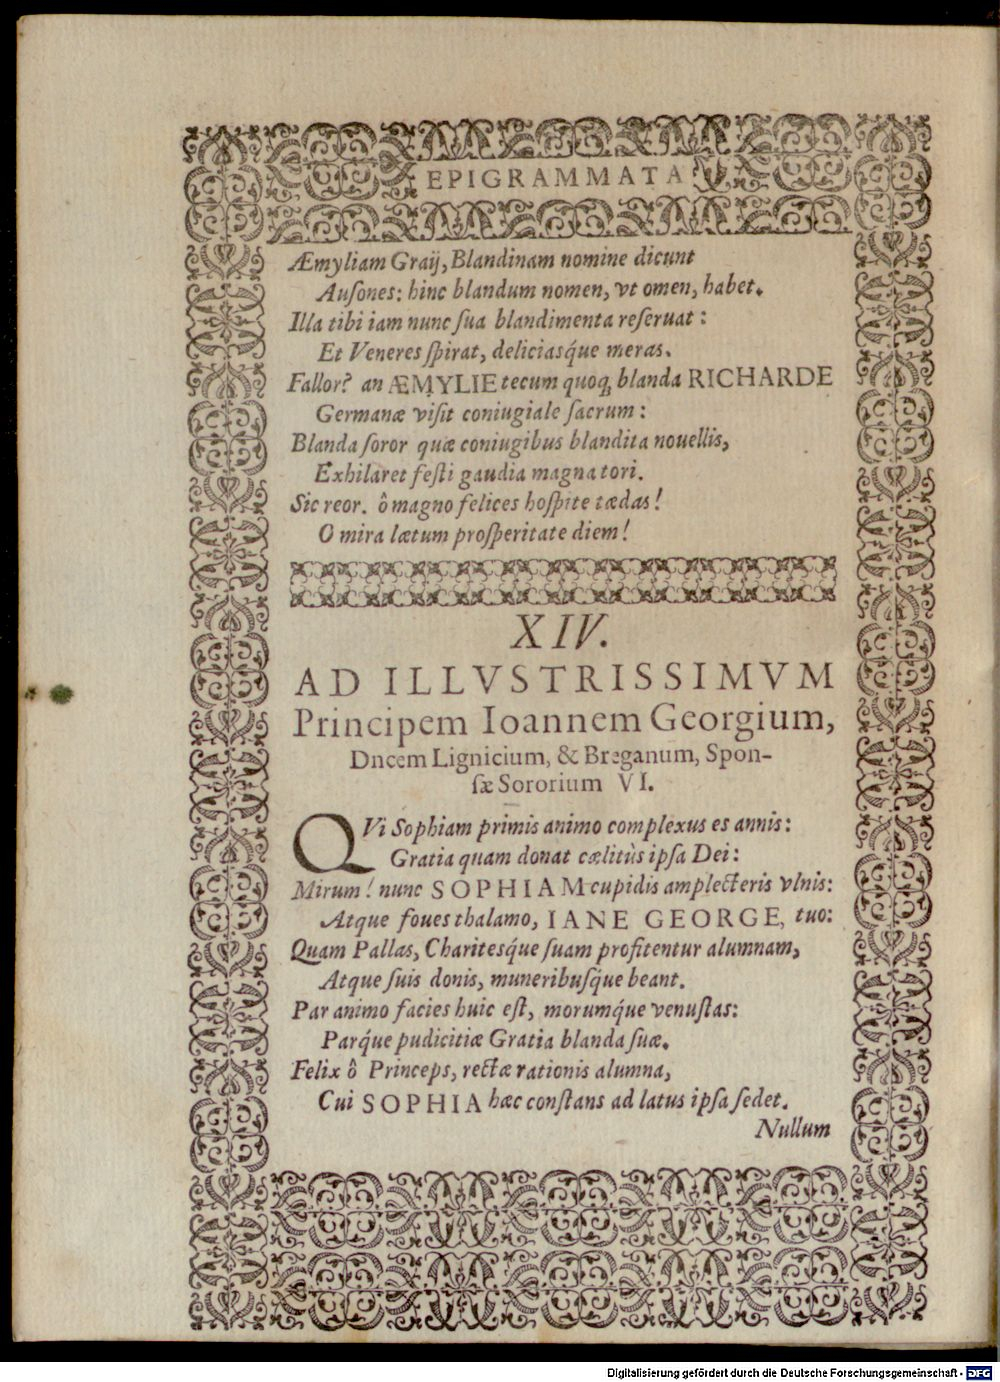 EPIGRAMMATA
Æmyliam Graij, Blandinam nomine dicunt
Auſones: hinc blandum nomen, vt omen, habet.
Illa tibi iam nunc ſua blandimenta reſeruat:
Et Veneres ſpirat, deliciasq́ue meras.
Fallor? an ÆMYLIE tecum quoq; blanda RICHARDE
Germanæ viſit coniugiale ſacrum:
Blanda ſoror quæ coniugibus blandita nouellis,
Exhilaret feſti gaudia magna tori.
Sic reor. ô magno felices hoſpite tædas!
O mira lætum proſperitate diem!
XIV.
AD ILLVSTRISSIMVM
Principem Ioannem Georgium,
Dncem Lignicium, & Breganum, Spon-
ſæ Sororium VI.
QVi Sophiam primis animo complexus es annis:
Gratia quam donat cælitùs ipſa Dei:
Mirum! nunc SOPHIAM cupidis amplecteris vlnis:
Atque foues thalamo, IANE GEORGE, tuo:
Quam Pallas, Charitesq́ue ſuam profitentur alumnam,
Atque ſuis donis, muneribuſq́ue beant.
Par animo facies huic eſt, morumq́ue venuſtas:
Parq́ue pudicitiæ Gratia blanda ſuæ.
Felix ô Princeps, rectæ rationis alumna,
Cui SOPHIA hæc conſtans ad latus ipſa ſedet.
Nullum
Digitalisierung gefördert durch die Deutsche Forschungsgemeinschaft - DFG